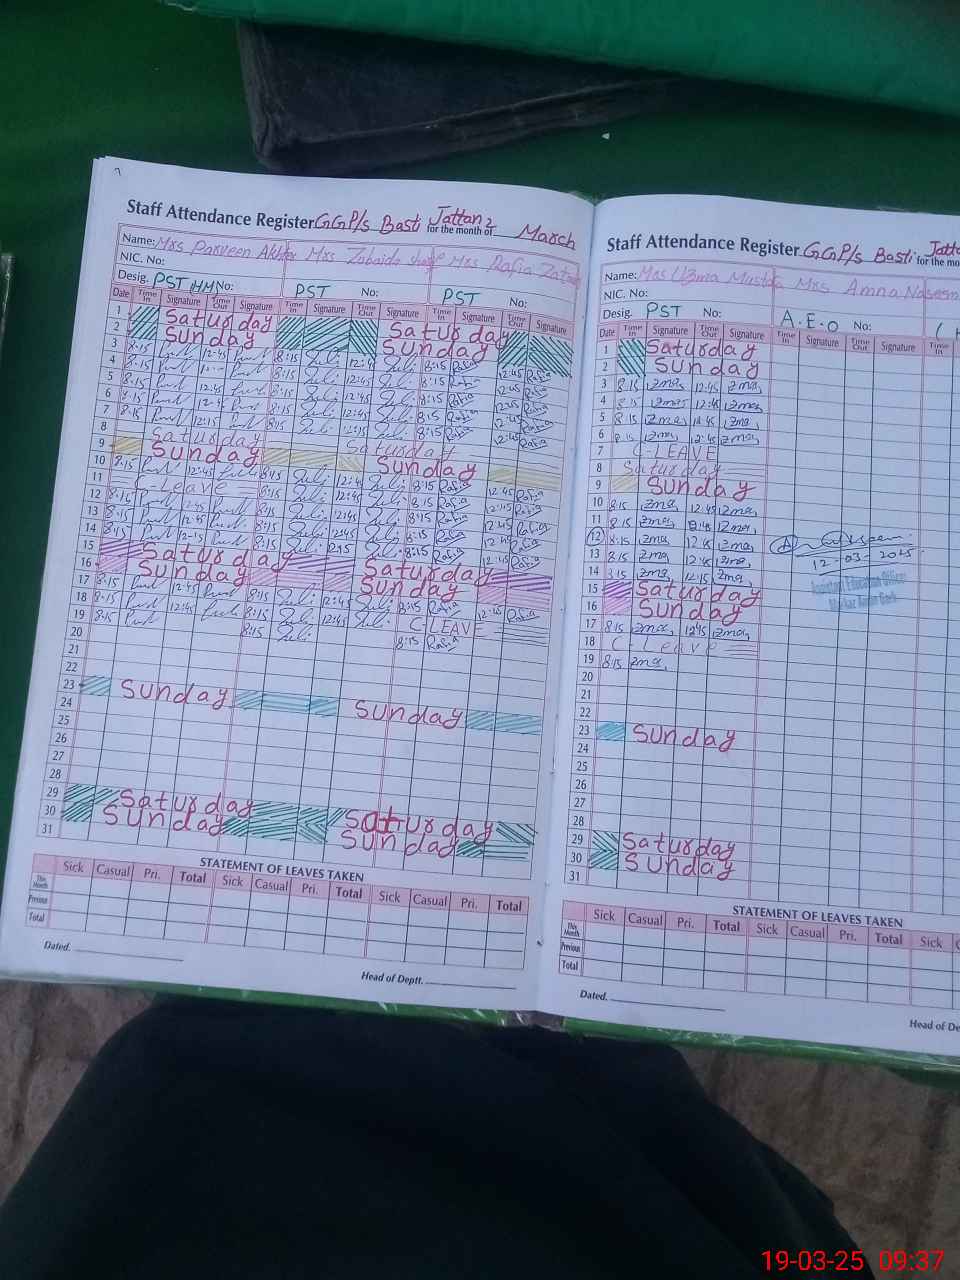 Staff Attendance Register GGP/s Basti Jattan 2 for the month of March
Name: Mrs Parveen Akhtar Mrs Zobaida Mrs Rafia
NIC. No:
Desig. PST HM No: PST No: PST No:
Date Time In Signature Time Out Signature Time In Signature Time Out Signature Time In Signature Time Out Signature
1 Saturday Saturday
2 Sunday Sunday
3 8:15 12:45 8:15 12:45 8:15 Rafia 12:45 Rafia
4 8:15 8:15 12:45 8:15 Rafia 12:45 Rafia
5 8:15 12:45 8:15 12:45 8:15 Rafia 12:45 Rafia
6 8:15 12:45 8:15 12:45 8:15 Rafia 12:45 Rafia
7 8:15 12:15 8:15 12:15 8:15 Rafia 12:15 Rafia
8 Saturday Saturday
9 Sunday Sunday
10 8:15 12:45 8:15 12:45 8:15 Rafia 12:45 Rafia
11 C-Leave 8:15 12:45 8:15 Rafia 12:45 Rafia
12 8:15 12:45 8:15 12:45 8:15 Rafia 12:45 Rafia
13 8:15 12:45 8:15 12:45 8:15 Rafia 12:45 Rafia
14 8:15 12-15 8:15 8:15 Rafia Rafia
15 Saturday Saturday
16 Sunday Sunday
17 8:15 12:45 8:15 12:45 8:15 Rafia 12:45 Rafia
18 8:15 12:45 8:15 12:45 C-LEAVE
19 8:15 8:15 8:15 Rafia
20
21
22
23 Sunday Sunday
24
25
26
27
28
29 Saturday Saturday
30 Sunday Sunday
31
STATEMENT OF LEAVES TAKEN
Sick Casual Pri. Total Sick Casual Pri. Total Sick Casual Pri. Total
This Month
Previous
Total
Dated.
Head of Deptt.
Staff Attendance Register GGP/s Basti Jatta for the mo
Name: Mrs Uzma Mustafa Mrs Amna Naseem
NIC. No:
Desig. PST No: A.E.O No:
Date Time In Signature Time Out Signature Time In Signature Time Out Signature Time In
1 Saturday
2 Sunday
3 8:15 Uzma 12:45 Uzma
4 8:15 Uzma 12:45 Uzma
5 8:15 Uzma 12:45 Uzma
6 8:15 Uzma 12:45 Uzma
7 C-LEAVE
8 Saturday
9 Sunday
10 8:15 Uzma 12:45 Uzma
11 8:15 Uzma 12:45 Uzma
12 8:15 Uzma 12:45 Uzma
13 8:15 Uzma 12:45 Uzma 12-03-2025
14 8:15 Uzma 12:15 Uzma
Assistant Education Officer
Markaz
15 Saturday
16 Sunday
17 8:15 Uzma 12:45 Uzma
18 C-Leave
19 8:15 Uzma
20
21
22
23 Sunday
24
25
26
27
28
29 Saturday
30 Sunday
31
STATEMENT OF LEAVES TAKEN
Sick Casual Pri. Total Sick Casual Pri. Total Sick
This Month
Previous
Total
Dated.
Head of De
19-03-25 09:37